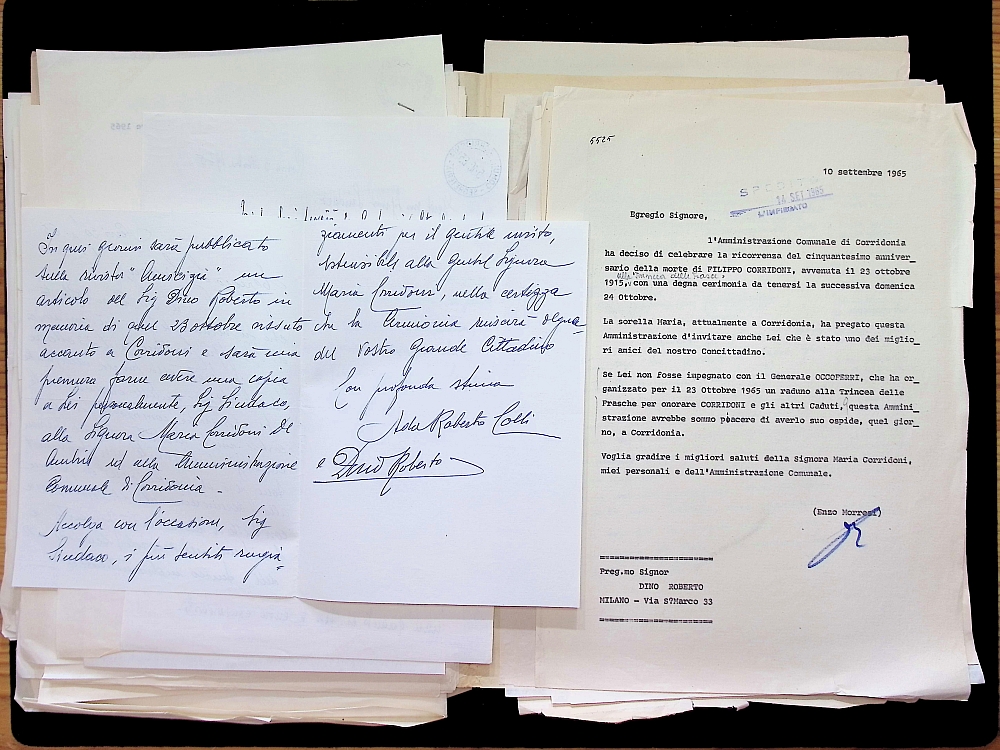 In quei giorni sarà pubblicato
sulla rivista "Amicizia" un
articolo del Sig Dino Roberto in
memoria di quel 23 ottobre vissuto
accanto a Corridoni e sarà mia
premura farne avere una copia
a Lei personalmente, Sig Sindaco,
alla Signora Maria Corridoni
ed alla Amministrazione
Comunale di Corridonia -
Accolga con l'occasione, Sig
Sindaco, i più sentiti ringra=
ziamenti per il gentile invito,
estensibili alla gentile Signora
Maria Corridoni, nella certezza
che la cerimonia riuscirà degna
del Vostro Grande Cittadino
Con profonda stima
Ada Roberto Colli
e Dino Roberto
5525
10 settembre 1965
14 SET 1965
L'IMPIEGATO
Egregio Signore,
l'Amministrazione Comunale di Corridonia
ha deciso di celebrare la ricorrenza del cinquantesimo anniver_
sario della morte di FILIPPO CORRIDONI, avvenuta il 23 ottobre
alla Trincea delle Frasche
1915, con una degna cerimonia da tenersi la successiva domenica
24 Ottobre.
La sorella Maria, attualmente a Corridonia, ha pregato questa
Amministrazione d'invitare anche Lei che è stato uno dei miglio_
ri amici del nostro Concittadino.
Se Lei non fosse impegnato con il Generale OCCOFERRI, che ha or_
ganizzato per il 23 Ottobre 1965 un raduno alla Trincea delle
Frasche per onorare CORRIDONI e gli altri Caduti, questa Ammini_
strazione avrebbe sommo piacere di averlo suo ospite, quel gior_
no, a Corridonia.
Voglia gradire i migliori saluti della Signora Maria Corridoni,
miei personali e dell'Amministrazione Comunale.
(Enzo Morresi)
Preg.mo Signor
DINO ROBERTO
MILANO - Via S?Marco 33